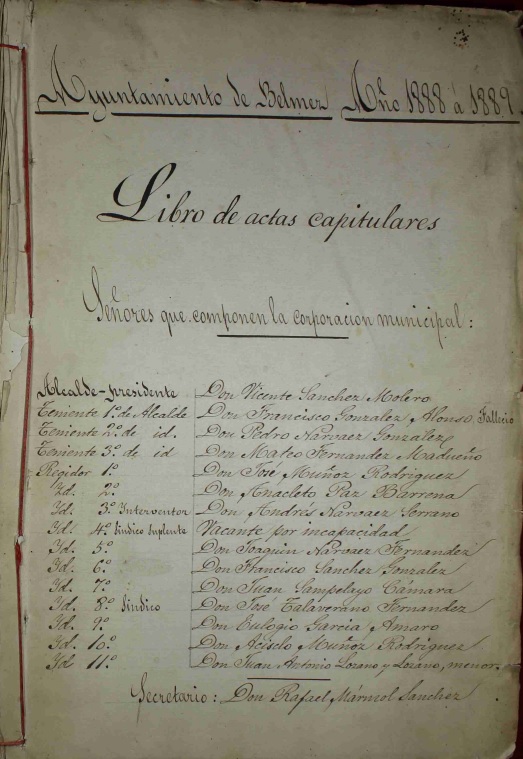 Ayuntamiento de Belmez Año 1888 á 1889.
Libro de actas capitulares
Señores que componen la corporacion municipal:
Alcalde-presidente Don Vicente Sanchez Molero
Teniente 1º de Alcalde Don Francisco Gonzalez Alonso Falleció
Teniente 2º de id. Don Pedro Narvaez Gonzalez
Teniente 3º de id Don Mateo Fernandez Madueño
Regidor 1º Don José Muñoz Rodriguez
Id. 2º Don Anacleto Paz Barrena
Id. 3º Interventor Don Andrés Narvaez Serrano
Id. 4º Sindico Suplente Vacante por incapacidad
Id. 5º Don Joaquin Narvaez Fernandez
Id. 6º Don Francisco Sanchez Gonzalez
Id. 7º Don Juan Sampelayo Cámara
Id. 8º Sindico Don José Talaverano Fernandez
Id. 9º Don Eulogio Garcia Amaro
Id. 10.º Don Acisclo Muñoz Rodriguez
Id 11.º Don Juan Antonio Lozano y Lozano, menor.
Secretario: Don Rafael Mármol Sanchez